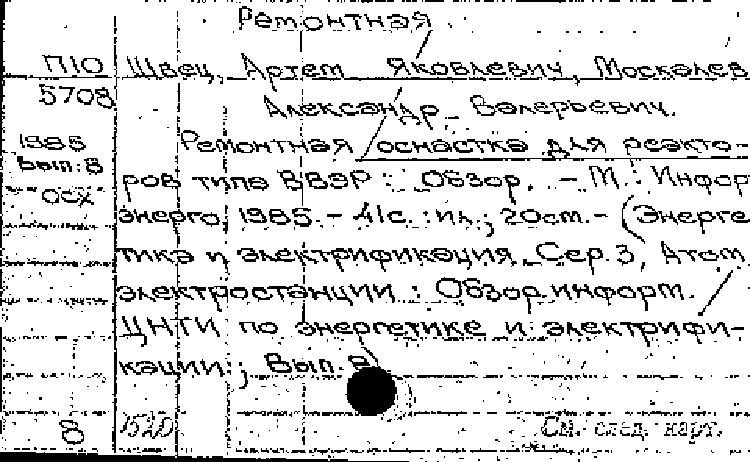 Ремонтная
П10 Швец, Артем Яковлевич, Москалев
5708 Александр Валерьевич.
1985 Ремонтная оснастка для реакто-
Вып. 8 ров типа ВВЭР : Обзор. - М. : Информ
осх энерго, 1985. - 41с. : ил.; 20см. - (Энерге
тика и электрификация. Сер. 3, Атом.
электростанции : Обзор. информ.
ЦНТИ по энергетике и электрифи-
кации ; Вып. 8
8 1520 См. след. карт.